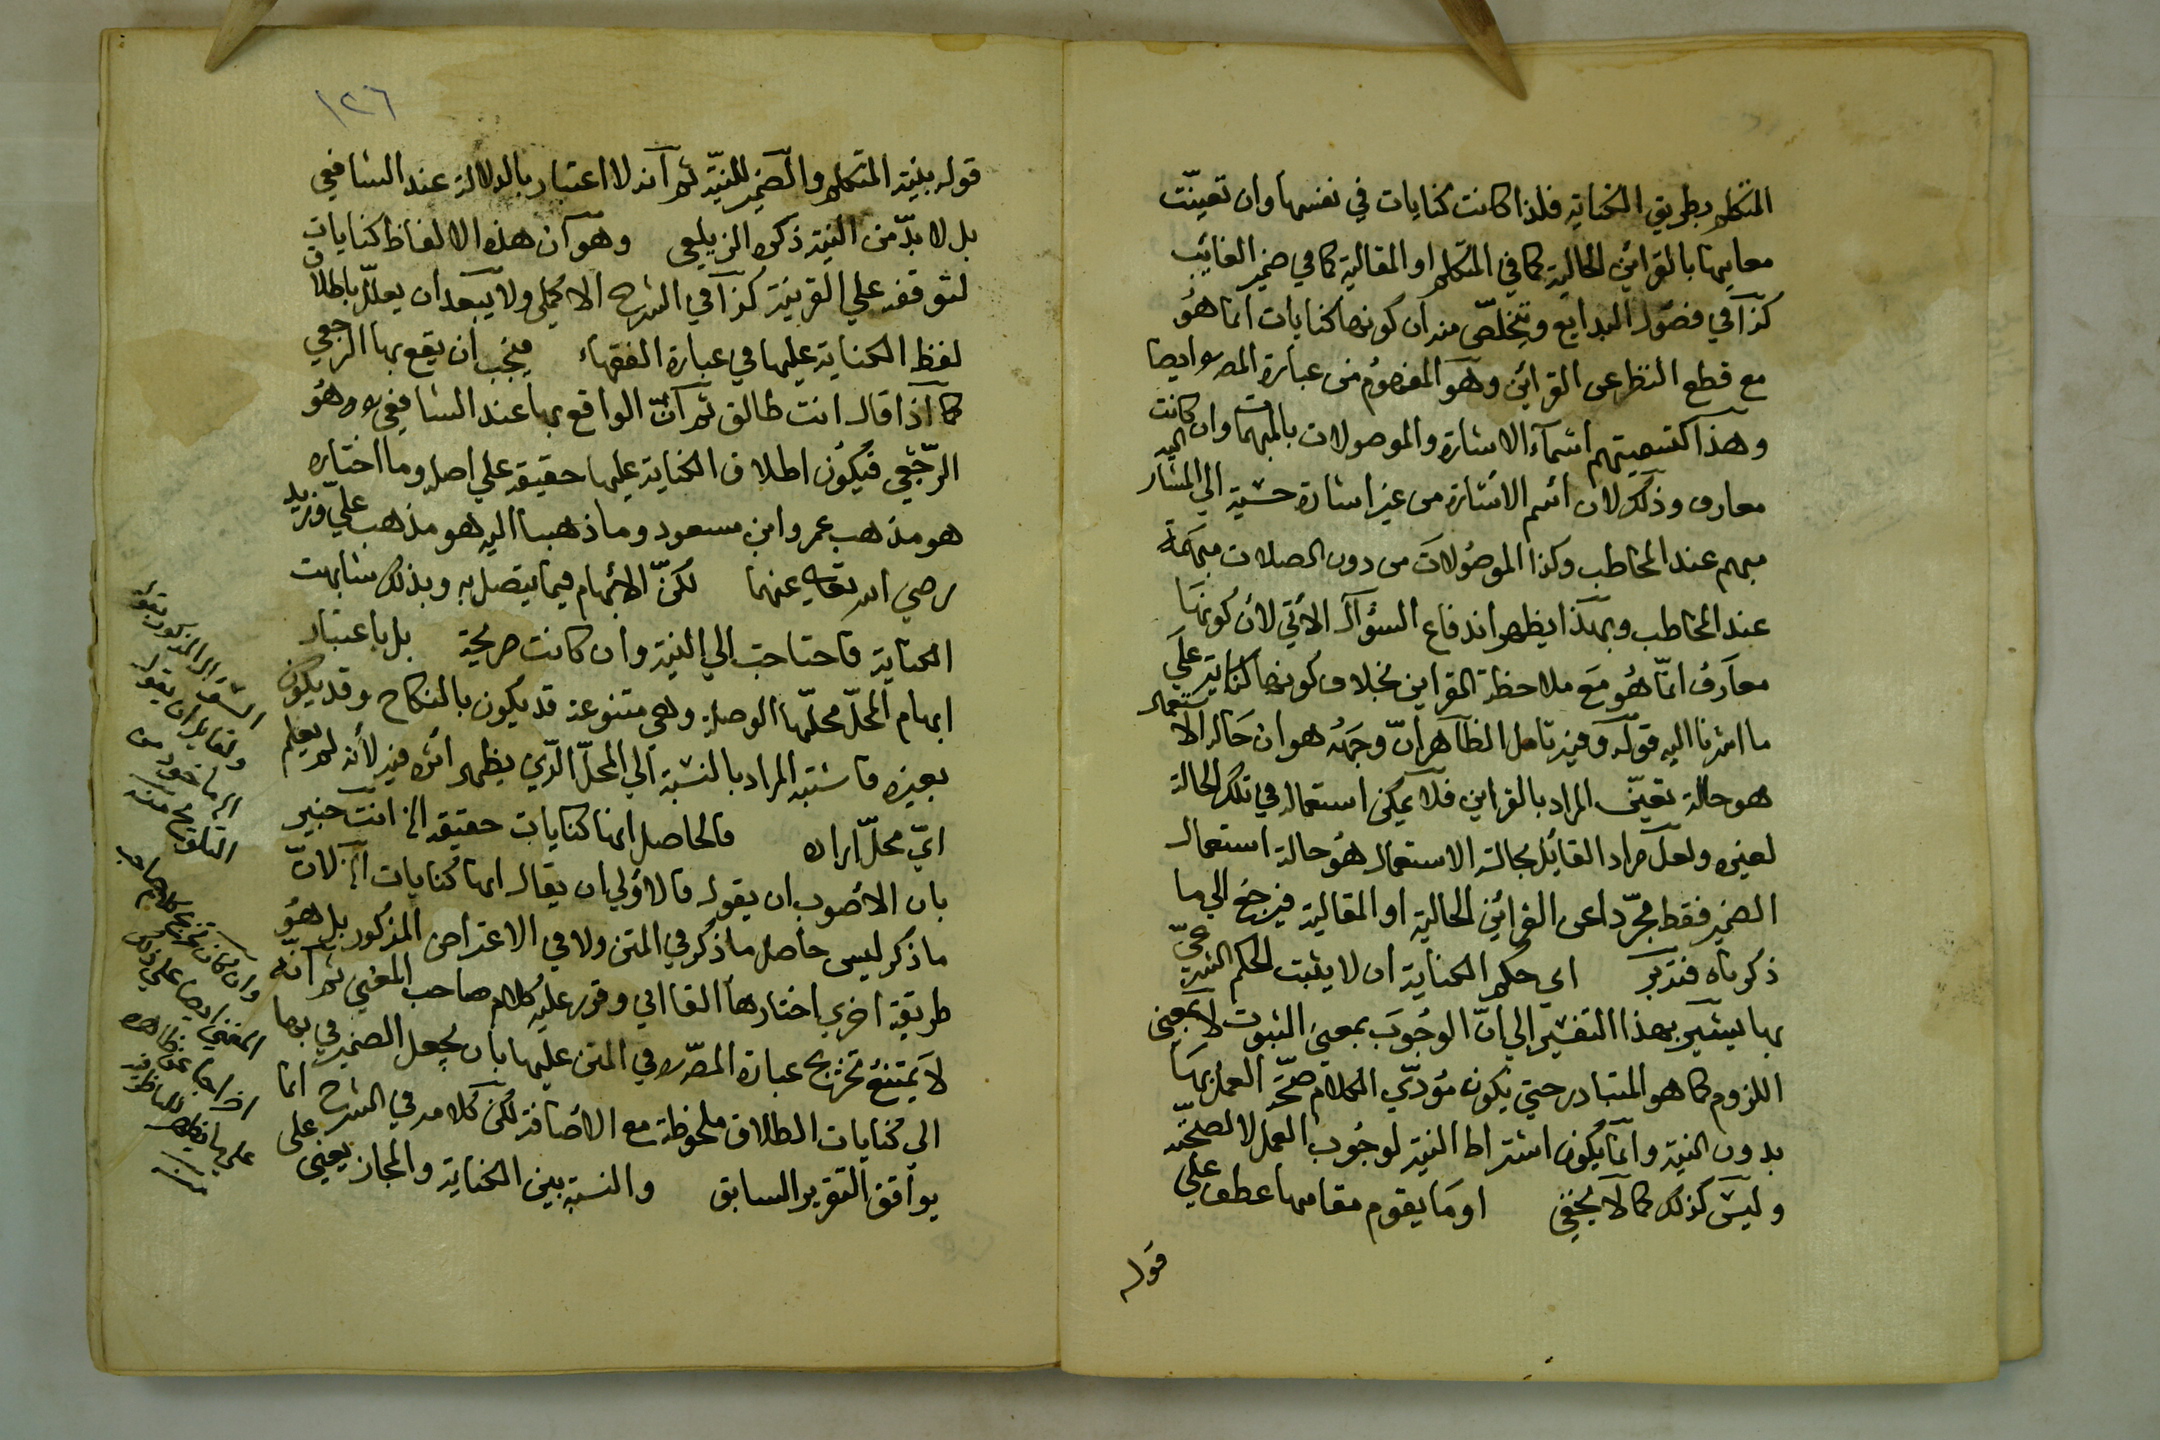 المتكلم بطريق الكناية فلذا كانت كنايات في نفسها وان تعينت
معانيها بالقرائن الحالية كما في المتكلم او المقالية كما في ضمير الغائب
كذا في فصول البدايع ويتخلص منه ان كونها كنايات انما هو
مع قطع النظر عن القرائن وهو المفهوم من عبارة المصر وايضا
وهذا كتسميتهم اسماء الاشارة والموصولات بالمبهمات وان كانت
معارف وذلك لان اسم الاشارة من غير اشارة حسية الي المشار اليه
مبهم عند المخاطب وكذا الموصولات من دون الصلات مبهمة
عند المخاطب وبهذا يظهر اندفاع السؤال الاتي لان كونها
معارف انما هو مع ملاحظة القراين بخلاف كونها كناية علي
ما اشرنا اليه قوله وفيه تامل الظاهر ان وجهه هو ان حالة الاستعمال
هو حالة تعين المراد بالقراين فلا يمكن استعماله في تلك الحالة
لغيره ولعل مراد القائل بحالة الاستعمال هو حالة استعمال
الضمير فقط مجردا عن القرائن الحالية او المقالية فيرجع الي ما
ذكرناه فتدبر اي حكم الكناية ان لا يثبت الحكم الشرعي
بها يشير بهذا التفسير الي ان الوجوب بمعني الثبوت لا بمعني
اللزوم كما هو المتبادر حتي يكون مؤدي الكلام صحة العمل بها
بدون النية وانما يكون اشتراط النية لوجوب العمل لا لصحته
وليس كذلك كما لا يخفي او ما يقوم مقامها عطف علي
قوله
١٢٦
قوله بنية المتكلم والضمير للنية ثم انه لا اعتبار بالدلالة عند الشافعي
بل لا بد من النية ذكره الزيلعي وهو ان هذه الالفاظ كنايات
لتوقفه علي القرينة كذا في الشرح الاكملي ولا يبعد ان يعلل باطلاق
لفظ الكناية عليها في عبارة الفقهاء فيجب ان يقع بها الرجعي
كما اذا قال انت طالق ثم ان الواقع بها عند الشافعي وهو
الرجعي فيكون اطلاق الكناية عليها حقيقة علي اصله وما اختاره
هو مذهب عمر وابن مسعود وما ذهبنا اليه هو مذهب علي وزيد
رضي الله تعالي عنهما لكن الابهام فيما يتصل به وبذلك شابهت
الكناية فاحتاجت الي النية وان كانت صريحة بل باعتبار
ابهام المحل محلها الوصلة وهي متنوعة قد يكون بالنكاح وقد يكون
بغيره فاشتبه المراد بالنسبة الي المحل الذي يظهر اثره فيه لانه لم يعلم
اي محل اراده فالحاصل انها كنايات حقيقة الخ انت خبير
بان الاصوب ان يقول فالاولي ان يقال انها كنايات الخ لان
ما ذكر ليس حاصل ما ذكر في المتن ولا في الاعتراض المذكور بل هو
طريقة اخري اختارها القااني وقرر عليه كلام صاحب المغني ثم انه
لا يمتنع تخريج عبارة المصر في المتن عليها بان يجعل الضمير في بها
الي كنايات الطلاق ملحوظة مع الاضافة لكن كلامه في الشرح انما
يوافق التقرير السابق والنسبة بين الكناية والمجاز يعني علي
ولقايل ان يقول
وان كان تخريج كلام صاحب
المغني ايضا علي ذلك